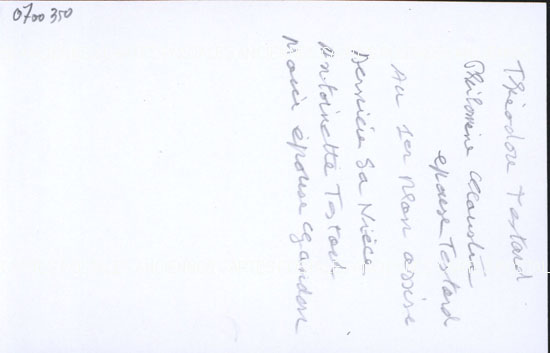 0700350
Théodore Testard
Philomène
épouse Testard
Au 1er Plan assise
Derrière Sa Nièce
Antoinette Testard
épouse Gandon